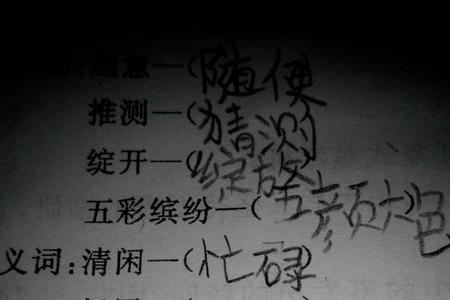 词:随意—(随便
推测—(猜测
绽开—(绽放)
五彩缤纷—(五颜六色
义词:清闲—(忙碌)